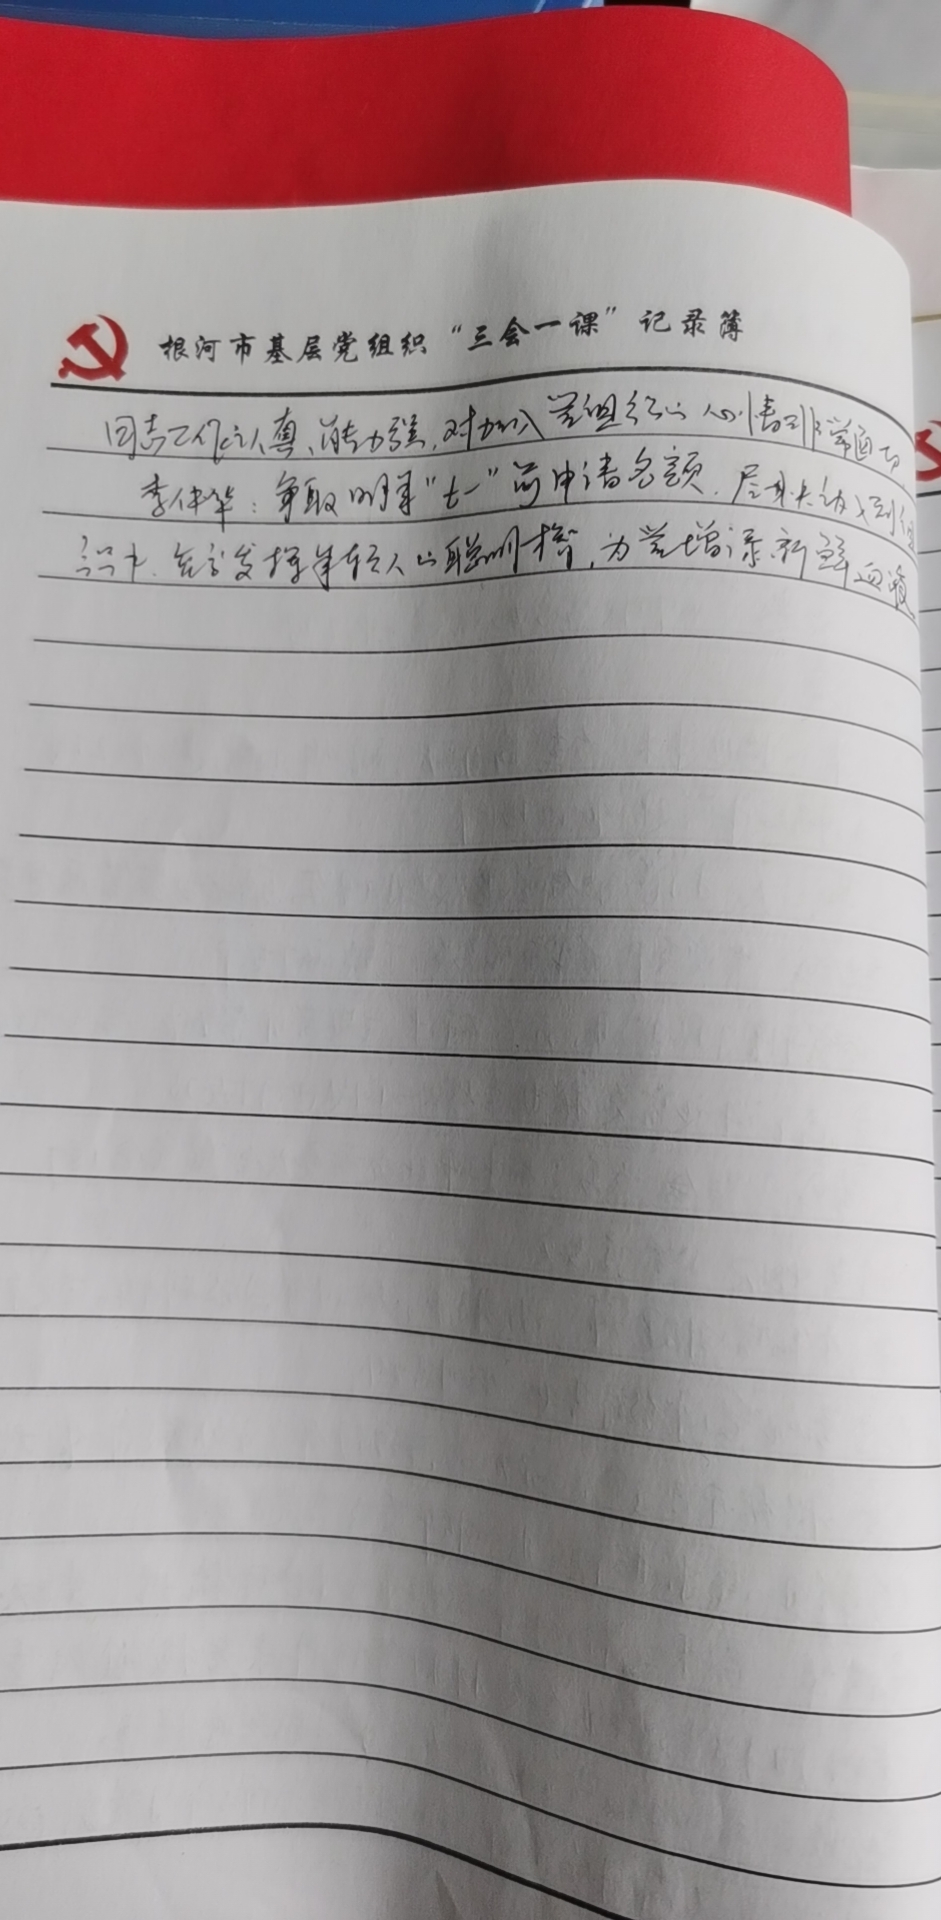 根河市基层党组织“三会一课”记录簿
同志工作认真、能力强，对加入党组织的心情非常迫切
李伟华：争取明年“七一”前申请名额，尽早
充分发挥年轻人的聪明才智，为党增添新鲜血液。